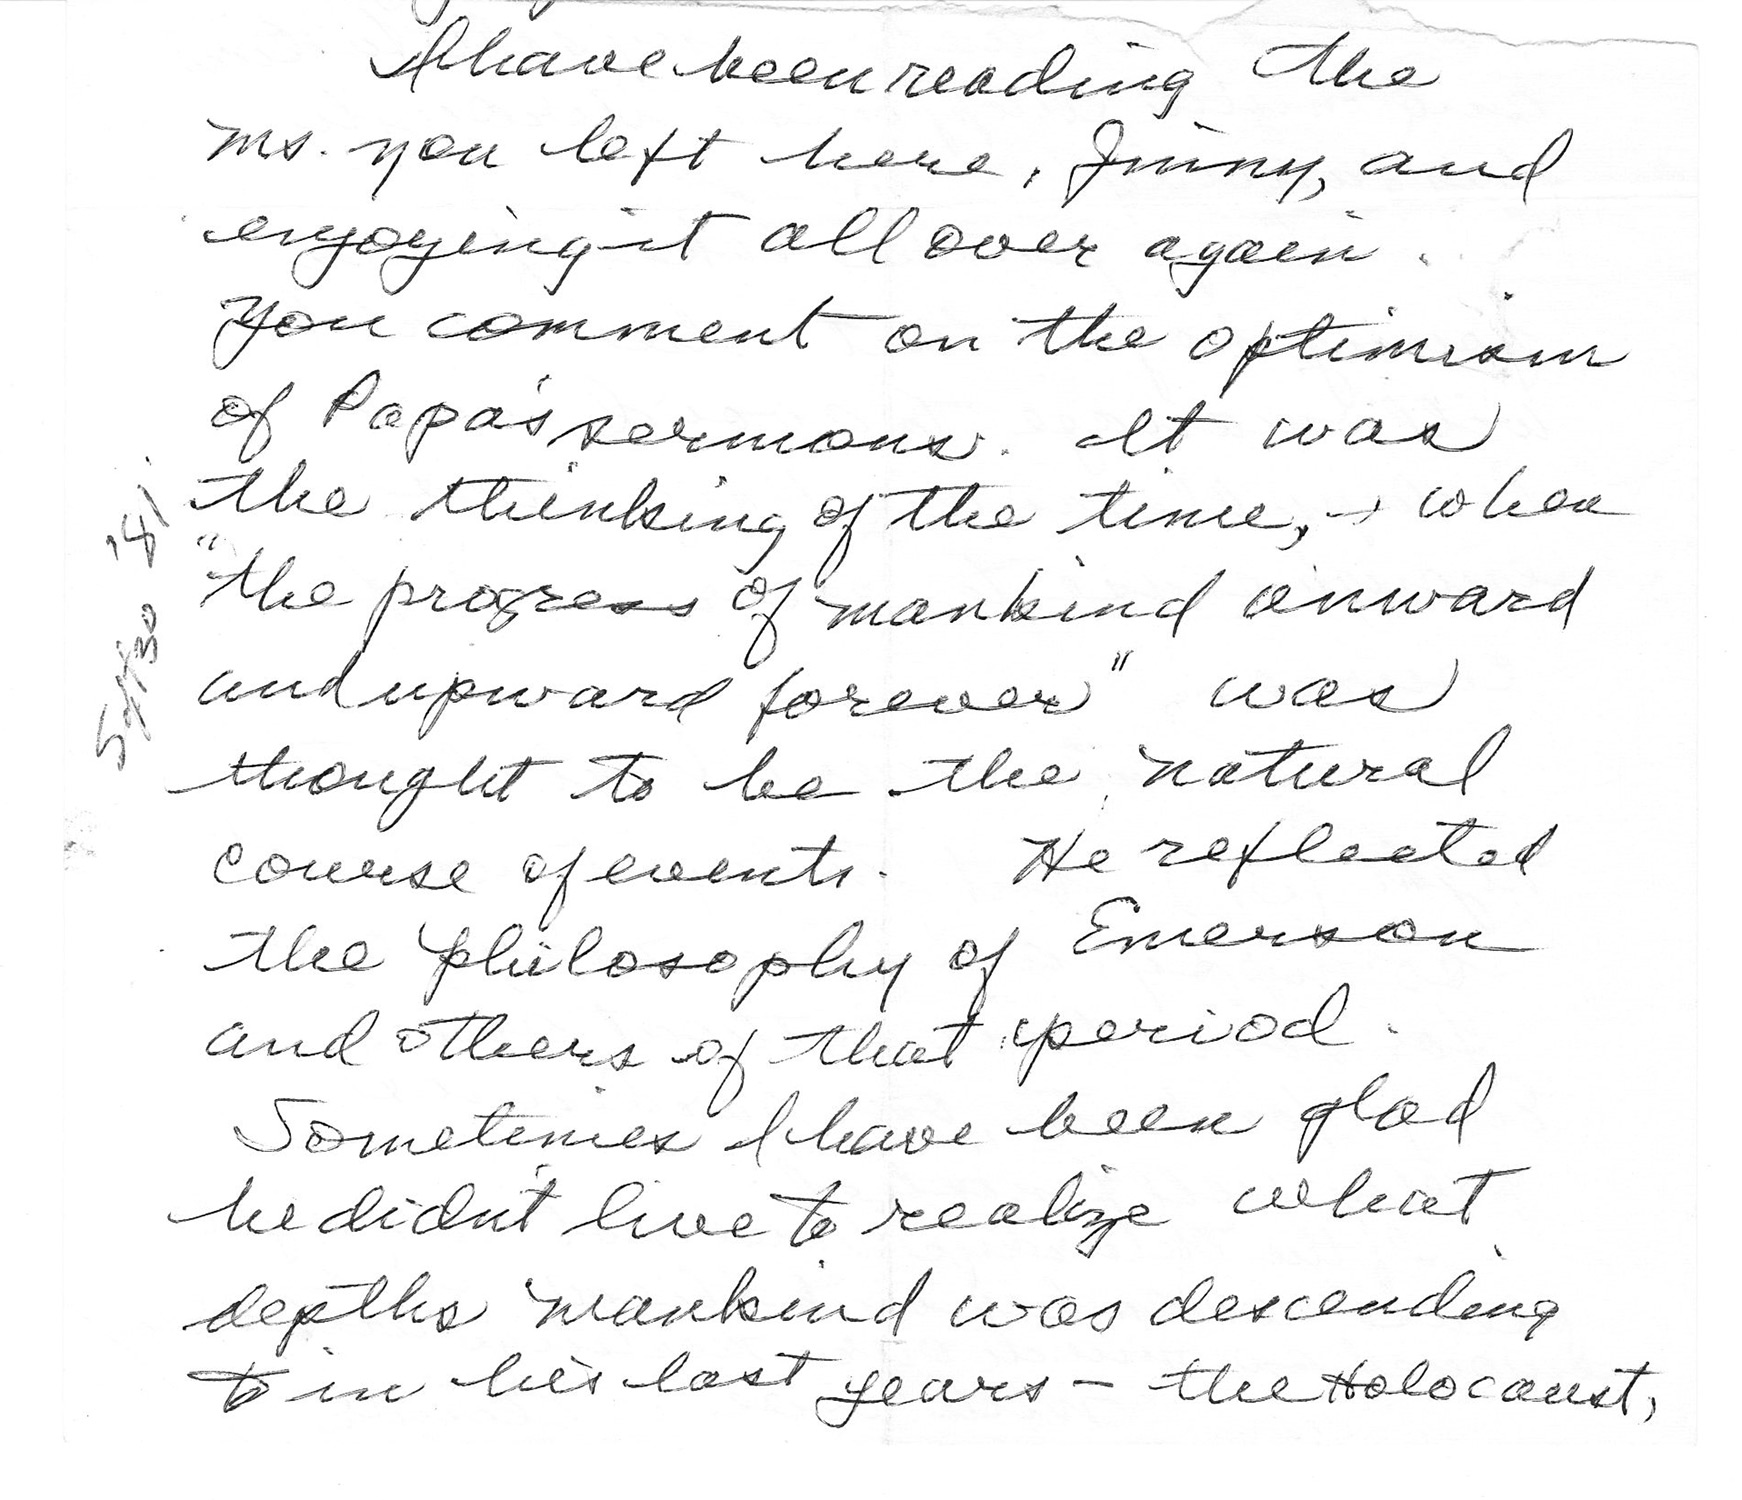 I have been reading the
Ms. you left here, Jinny, and
enjoying it all over again.
You comment on the optimism
of Papa's sermons. It was
the thinking of the time, - when
"the progress of mankind onward
and upward forever" was
thought to be the natural
course of events. He reflected
the philosophy of Emerson
and others of that period.
Sometimes I have been glad
he didn't live to realize what
depths mankind was descending
to in his last years - the Holocaust,
Sept 30 '81.